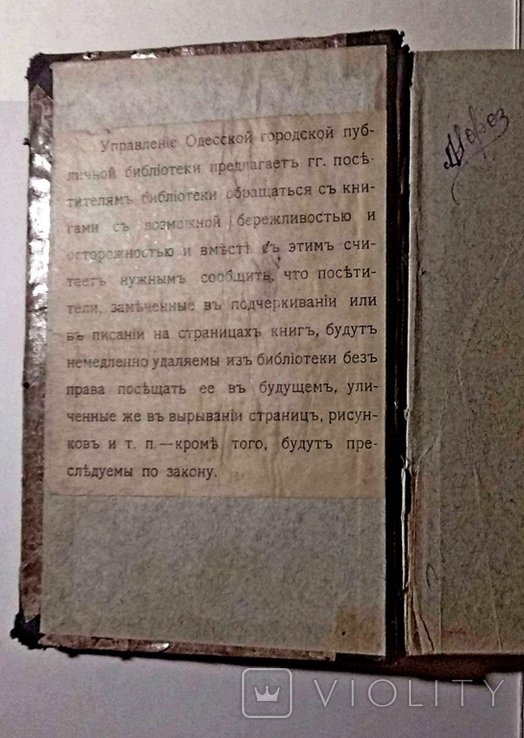 Управленіе Одесской городской пуб-
личной библіотеки предлагаетъ гг. посѣ-
тителямъ библіотеки обращаться съ кни-
гами съ возможной бережливостью и
осторожностью и вмѣстѣ съ этимъ счи-
таетъ нужнымъ сообщить, что посѣти-
тели, замѣченные въ подчеркиваніи или
въ писаніи на страницахъ книгъ, будутъ
немедленно удаляемы изъ библіотеки безъ
права посѣщать ее въ будущемъ, ули-
ченные же въ вырываніи страницъ, рисун-
ковъ и т. п.—кроме того, будутъ пре-
слѣдуемы по закону.
Мороз
VIOLITY